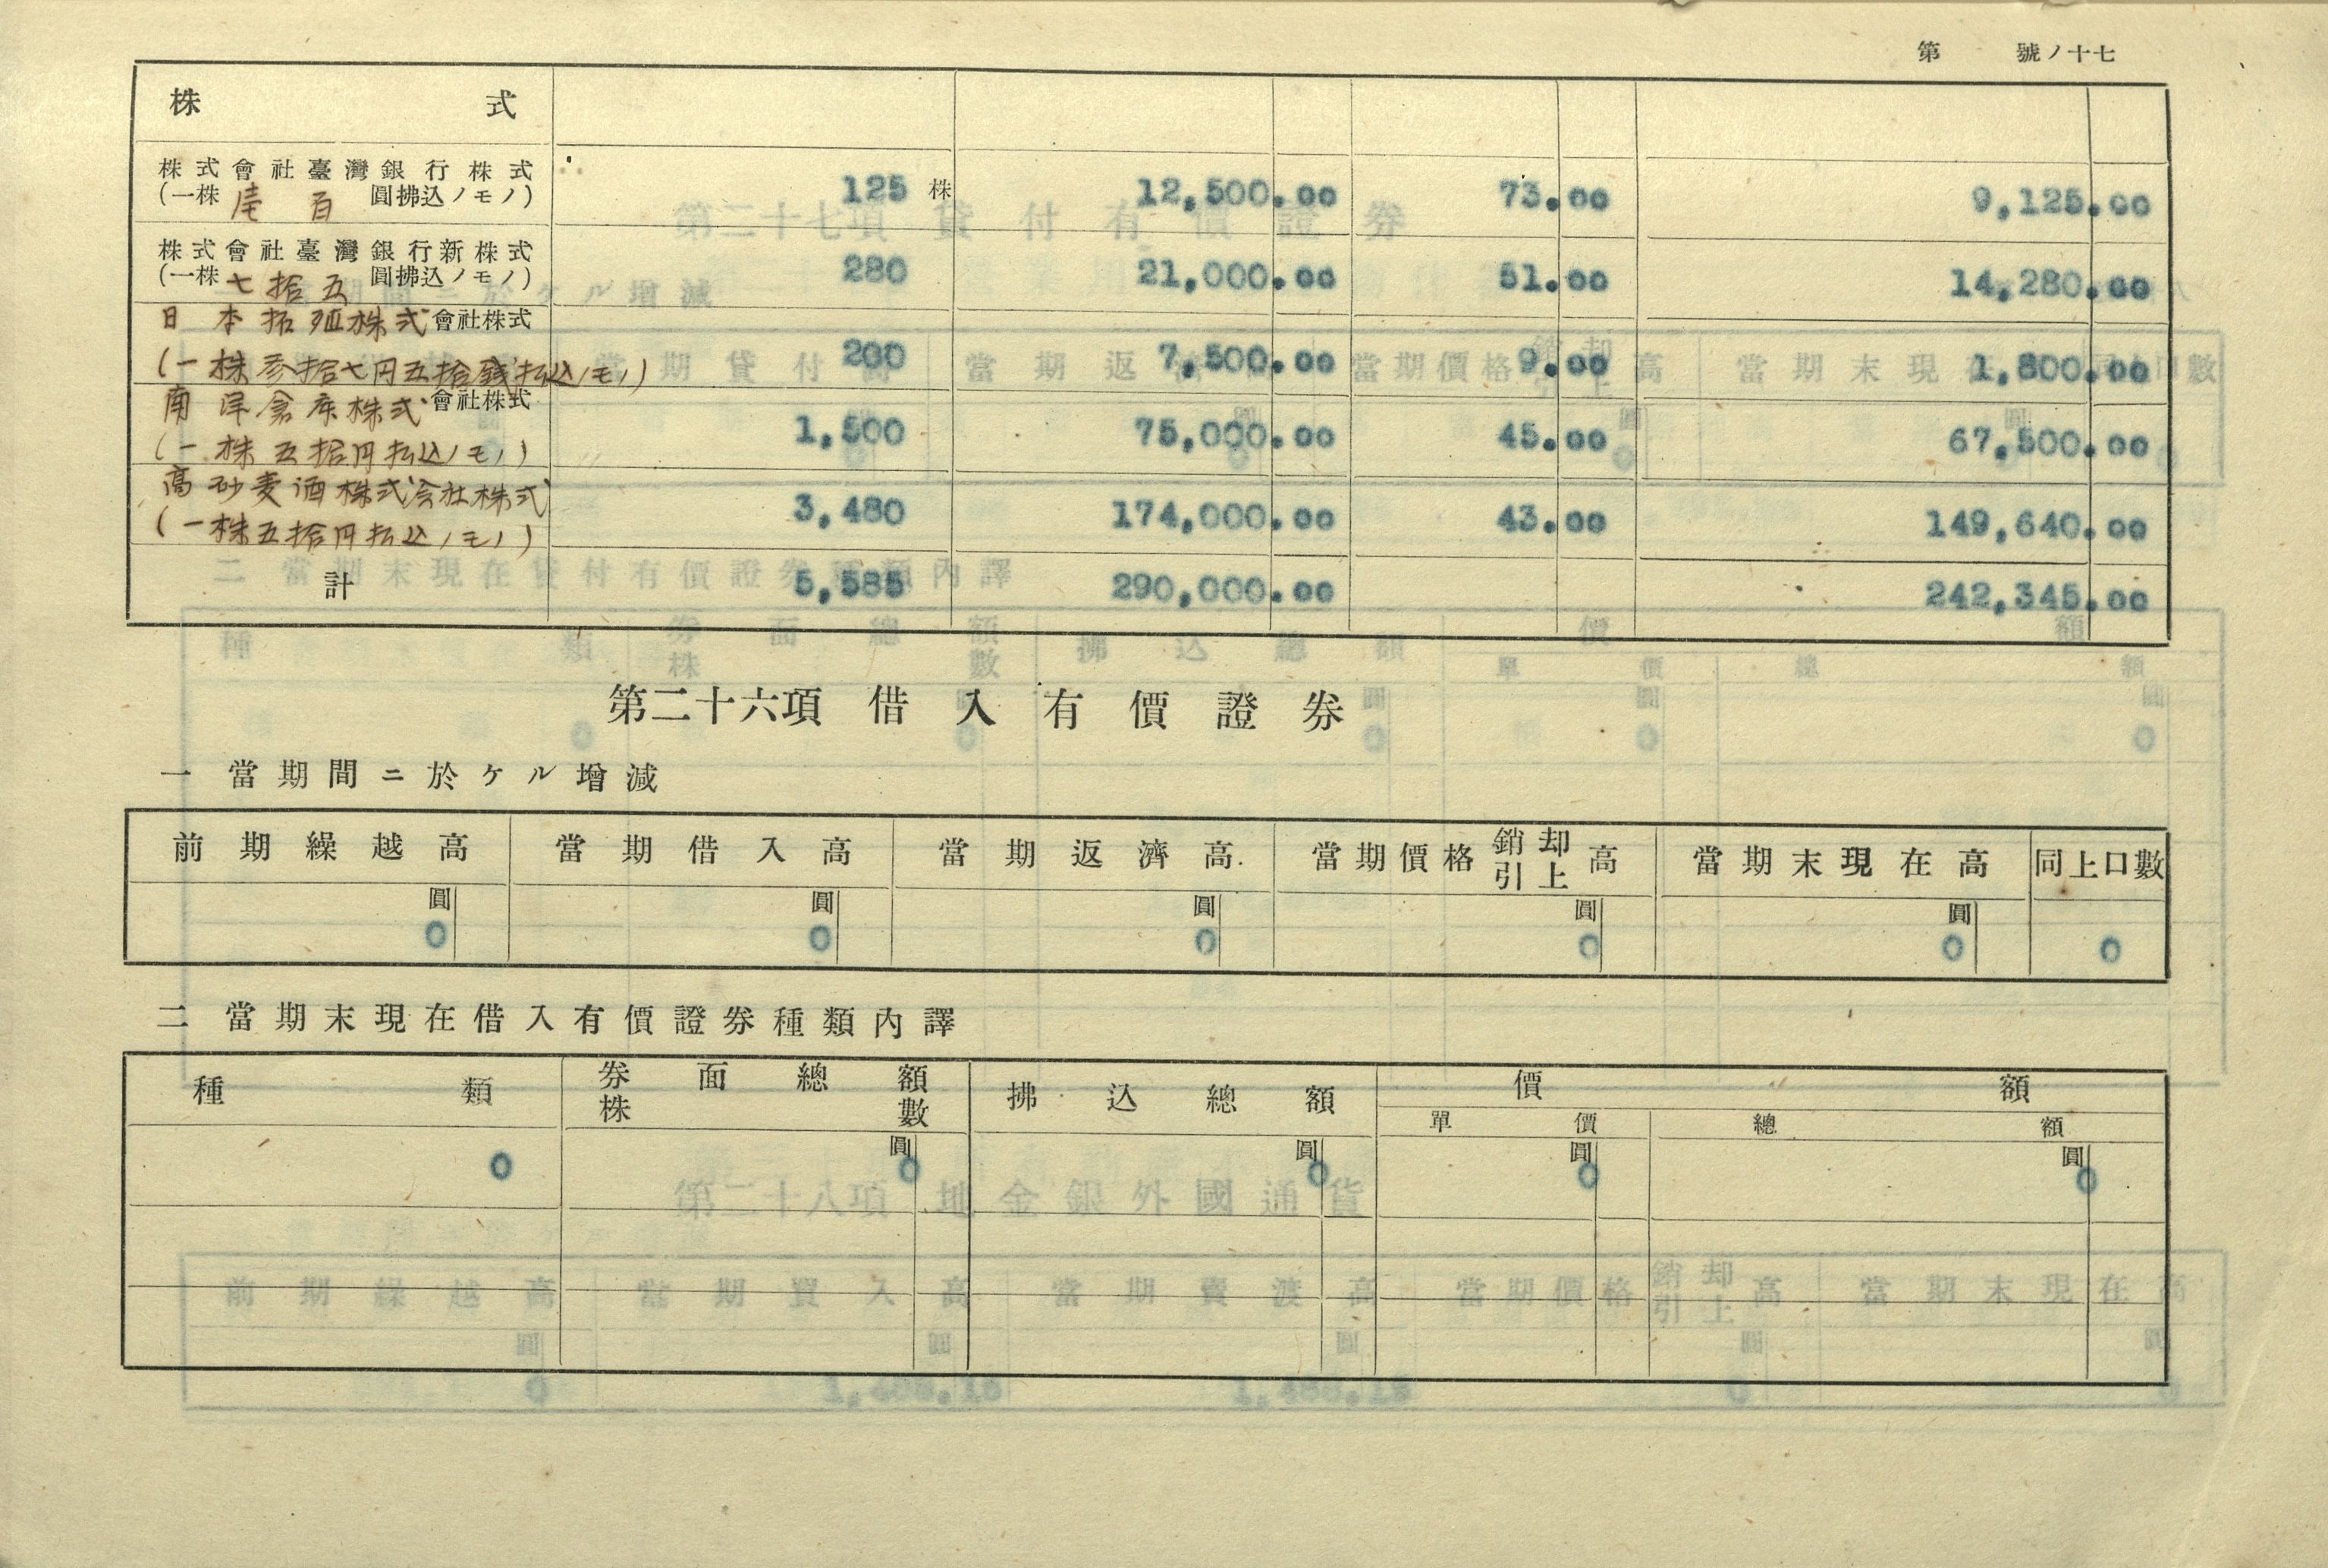 第 號ノ十七
株式
株式會社臺灣銀行株式
(一株 壱百 圓拂込ノモノ) 125 株 12,500.00 73.00 9,125.00
株式會社臺灣銀行新株式
(一株 七拾五 圓拂込ノモノ) 280 21,000.00 51.00 14,280.00
日本拓殖株式會社株式
(一株参拾七円五拾銭払込ノモノ) 200 7,500.00 9.00 1,800.00
南洋倉庫株式會社株式
(一株五拾円払込ノモノ) 1,500 75,000.00 45.00 67,500.00
高砂麦酒株式会社株式
(一株五拾円払込ノモノ) 3,480 174,000.00 43.00 149,640.00
計 5,585 290,000.00 242,345.00
第二十六項 借入有價證券
一 當期間ニ於ケル增減
前期繰越高 當期借入高 當期返濟高 當期價格銷却引上高 當期末現在高 同上口數
圓 圓 圓 圓 圓
0 0 0 0 0 0
二 當期末現在借入有價證券種類內譯
種類 券面總額 拂込總額 價額
株數 單價 總額
圓 圓 圓 圓
0 0 0 0 0